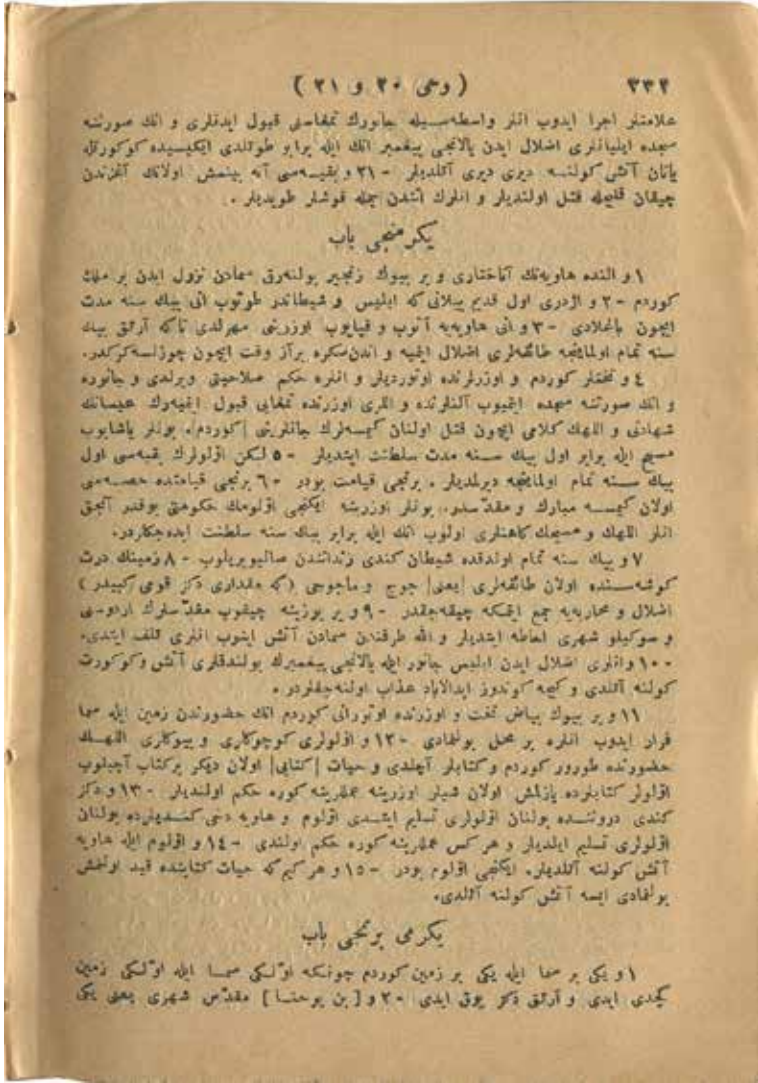 ٣٣٢ ( وحی ٢٠ و ٢١ )
علامتلر اجرا ایدوب انلر واسطه‌سیله جانورك تمغاسنی قبول ایدنلری و انك صورتنه
سجده ایلیانلری اضلال ایدن یالانجی پیغمبر انك ایله برابر طوتلدی ایکیسیده کوکورتله
یانان آتش کولنه دیری دیری آتلدیلر -٢١ و بقیه‌سی آته بینمش اولانك آغزندن
چیقان قلیجله قتل اولندیلر و انلرك اتندن جمله قوشلر طویدیلر .
یکرمنجی باب
١ و النده هاویه‌نك آناختاری و بر بیوك زنجیر بولنه‌رق سمادن نزول ایدن بر ملك
کوردم -٢ و اژدری اول قدیم ییلانی که ابلیس و شیطاندر طوتوب انی بیك سنه مدت
ایچون باغلادی -٣ و انی هاویه‌یه آتوب و قپایوب اوزرینی مهرلدی تاکه آرتق بیك
سنه تمام اولماینجه طائفه‌لری اضلال ایتمیه و اندن‌صکره برآز وقت ایچون چوزلسه‌کرکدر.
٤ و تختلر کوردم و اوزرلرنده اوتوردیلر و انلره حکم صلاحیتی ویرلدی و جانوره
و انك صورتنه سجده ایتمیوب آلنلرنده و اللری اوزرنده تمغایی قبول ایتمیه‌رك عیسانك
شهادتی و اللهك کلامی ایچون قتل اولنان کیمسه‌لرك جانلرینی [کوردم]. بونلر یاشایوب
مسیح ایله برابر اول بیك سنه مدت سلطنت ایتدیلر -٥ لکن اؤلولرك بقیه‌سی اول
بیك سنه تمام اولماینجه دیرلمدیلر . برنجی قیامت بودر -٦ برنجی قیامتده حصه‌سی
اولان کیمسه مبارك و مقدّسدر. بونلر اوزرینه ایکنجی اؤلومك حکومتی یوقدر آنجق
انلر اللهك و مسیحك کاهنلری اولوب انك ایله برابر بیك سنه سلطنت ایده‌جکلردر.
٧ و بیك سنه تمام اولدقده شیطان کندی زندانندن صالیویریلوب -٨ زمینك درت
کوشه‌سنده اولان طائفه‌لری [یعنی] جوج و ماجوجی (که مقداری دکز قومی کبیدر )
اضلال و محاربه‌یه جمع ایتمکه چیقه‌جقدر -٩ و یر یوزینه چیقوب مقدّسلرك اردوسنی
و سوکیلو شهری احاطه ایتدیلر و الله طرفندن سمادن آتش اینوب انلری تلف ایتدی.
-١٠ و انلری اضلال ایدن ابلیس جانور ایله یالانجی پیغمبرك بولندقلری آتش و کوکورت
کولنه آتلدی و کیجه کوندوز ابدالاباد عذاب اولنه‌جقلردر .
١١ و بر بیوك بیاض تخت و اوزرنده اوتورانی کوردم انك حضورندن زمین ایله سما
فرار ایدوب انلره بر محل بولنمادی -١٢ و اؤلولری کوچوکلری و بیوکلری اللهك
حضورنده طورور کوردم و کتابلر آچلدی و حیات [کتابی] اولان دیکر برکتاب آچیلوب
اؤلولر کتابلرده یازلمش اولان شیلر اوزرینه عمللرینه کوره حکم اولندیلر -١٣ و دکز
کندی دروننده بولنان اؤلولری تسلیم ایتدی اؤلوم و هاویه دخی کندیلرده بولنان
اؤلولری تسلیم ایلدیلر و هر کس عمللرینه کوره حکم اولندی -١٤ و اؤلوم ایله هاویه
آتش کولنه آتلدیلر. ایکنجی اؤلوم بودر -١٥ و هر کیم که حیات کتابنده قید اولنمش
بولنمادی ایسه آتش کولنه آتلدی.
یکرمی برنجی باب
١ و یکی بر سما ایله یکی بر زمین کوردم چونکه اوّلکی سما ایله اوّلکی زمین
کچدی ایدی و آرتق دکز یوق ایدی -٢ و [بن یوحنا] مقدّس شهری یعنی یکی